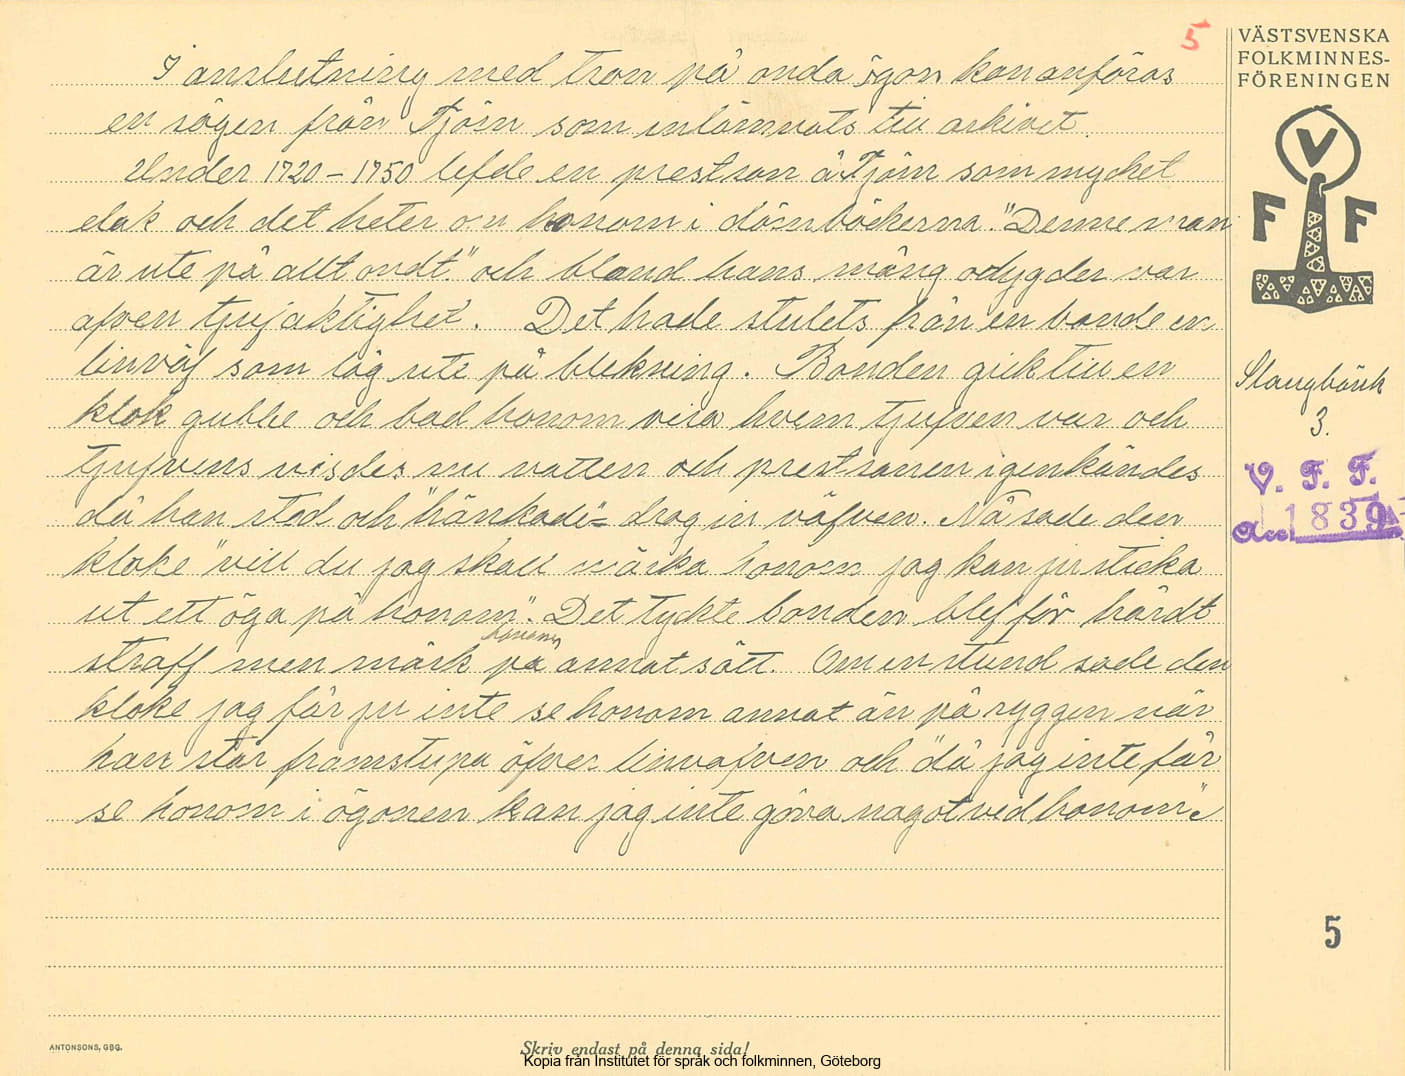 5
VÄSTSVENSKA
FOLKMINNES-
FÖRENINGEN
I anslutning med tron på onda ögon kan anföras
en sägen från Tjörn som inlämnats till arkivet.
Under 1720-1750 lefde en prestson å Tjörn som mycket
elak och det heter om honom i dömböckerna. "Denne man
är ute på allt ondt." och bland hans mång odygder var
äfven tjufaktighet. Det hade stulets från en bonde en
linväf som låg ute på blekning. Bonden gick till en
klok gubbe och bad honom visa hvem tjufven var och
tjufvens visdes nu vatten och prestsonen igenkändes
då han stod och "hänkade" = drog in väfven. Nå sade den
kloke "vill du jag skall märka honom jag kan ju sticka
ut ett öga på honom". Det tyckte bonden blef för hårdt
straff men märk honom på annat sätt. Om en stund sade den
kloke jag får ju inte se honom annat än på ryggen när
han står framstupa öfver linväfven och "då jag inte får
se honom i ögonen kan jag inte göra något ved honom".
V
F F
3.
V. F. F.
1839
5
ANTONSONS, GBG.
Skriv endast på denna sida!
Kopia från Institutet för språk och folkminnen, Göteborg